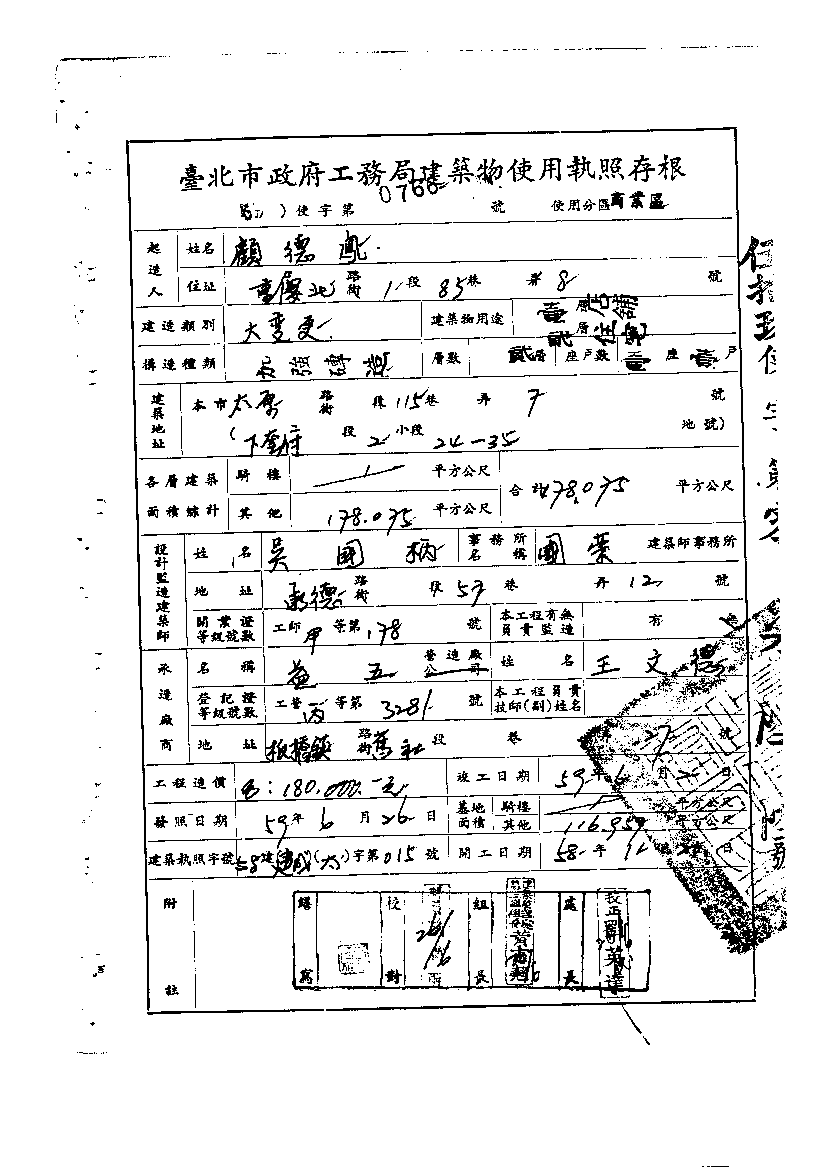 臺北市政府工務局建築物使用執照存根
使字第 0766 號 使用分區 商業區
起造人 姓名 顧德
住址 重慶北 路街 1 段 85 巷 弄 8 號
建造類別 大變更 建築物用途 壹層店舖 貳層住宅
構造種類 加強磚造 層數 貳層 座戶數 壹座壹戶
建築地址 本市太原 路街 段 115 巷 弄 7 號
(下奎府 段 2 小段 24-35 地號)
各層建築面積總計 騎樓 / 平方公尺 合計 178.075 平方公尺
其他 178.075 平方公尺
設計監造建築師 姓名 吳國柄 事務所名稱 國葉 建築師事務所
地址 承德 路街 段 57 巷 弄 12 號
開業證等級號數 工師 甲 等第 178 號 本工程有無負責監造 有
承造廠商 名稱 益五 營造廠公司 姓名 王文德
登記證等級號數 工營 丙 等第 3281 號 本工程負責技師(副)姓名
地址 板橋鎮 路街 舊社 段 巷 27 號
工程造價 180,000.-元 竣工日期 59 年 6 月 日
發照日期 59 年 6 月 26 日 基地面積 騎樓 / 平方公尺
其他 116.959 平方公尺
建築執照字號 58 建 建成(大)字第 015 號 開工日期 58 年 11 月 日
附註 繕寫 校對 組長 處長